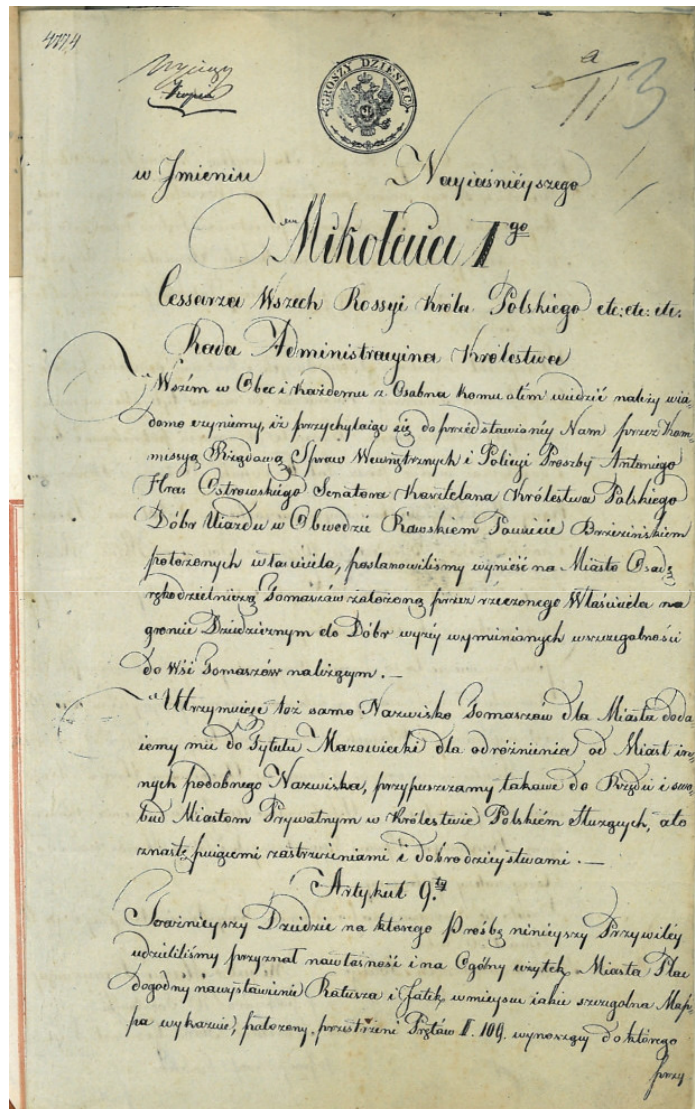 4774
Wyciąg
Kopia
GROSZY DZIESIĘĆ
a
11 3
w Jmieniu Nayiaśnieyszego
Mikołaia Igo
Cessarza Wszech Rossyi Króla Polskiego etc: etc: etc.
Rada Administracyina Królestwa
Wszem w Obec i każdemu z Osobna komu otem wiedzieć należy wia-
domo czyniemy, iż przychylaiąc się do przedstawionéy Nam przez Kom-
missyą Rządową Spraw Wewnętrznych i Policyi Prośby Antoniego
Hra: Ostrowskiego Senatora Kasztelana Królestwa Polskiego
Dóbr Uiazdu w Obwodzie Rawskiem Powiecie Brzezińskiem
położonych właściciela, postanowiliśmy wynieść na Miasto Osadę
rękodzielniczą Tomaszów założoną przez rzeczonego Właściciela na
groncie Dziedzicznym do Dóbr wyżéy wymienionych wszczegolności
do Wsi Tomaszów należącym. —
Utrzymuiąc toż samo Nazwisko Tomaszów dla Miasta doda
iemy mu do Tytułu Mazowiecki dla odróżnienia od Miast in-
nych podobnego Nazwiska, przypuszczamy takowe do Rzędu i swo-
bud Miastom Prywatnym w Królestwie Polskiém służących, a to
znastępuiącemi zastrzeżeniami i dobrodzieystwami. —
Artykuł 9.ty
Teraźnieyszy Dziedzic na którego Prośbę ninieyszy Przywiléy
udzieliliśmy przyznał nawłasność i na Ogólny użytek Miasta Plac
dogodny nawystawienie Ratusza i Jatek, w mieyscu iakie szczegolna Map-
pa wykazuie, położony, przestrzeni Prętów □. 109. wynoszący do którego
przy